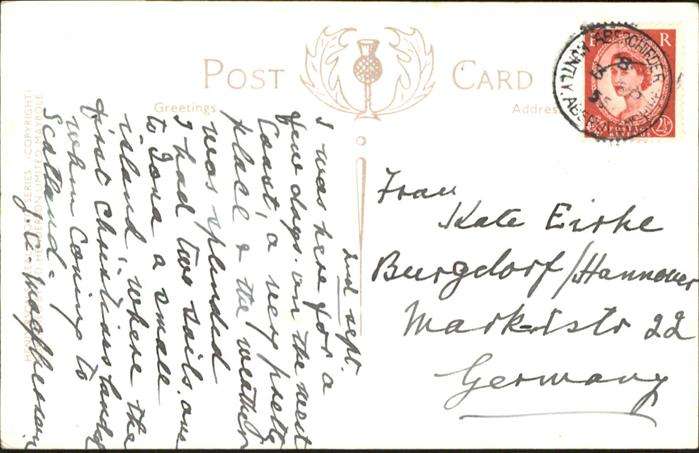 POST CARD
Greetings
Address
2nd sept.
I was here for a
few days on the west
Coast, a very pretty
place & the weather
was splendid
I had two sails. one
to Iona a small
island where the
first Christians landed
when coming to
Scotland.
J. C. Macpherson
Frau
Kate Eirke
Burgdorf/Hannover
Marktstr 22
Germany
E R
2½